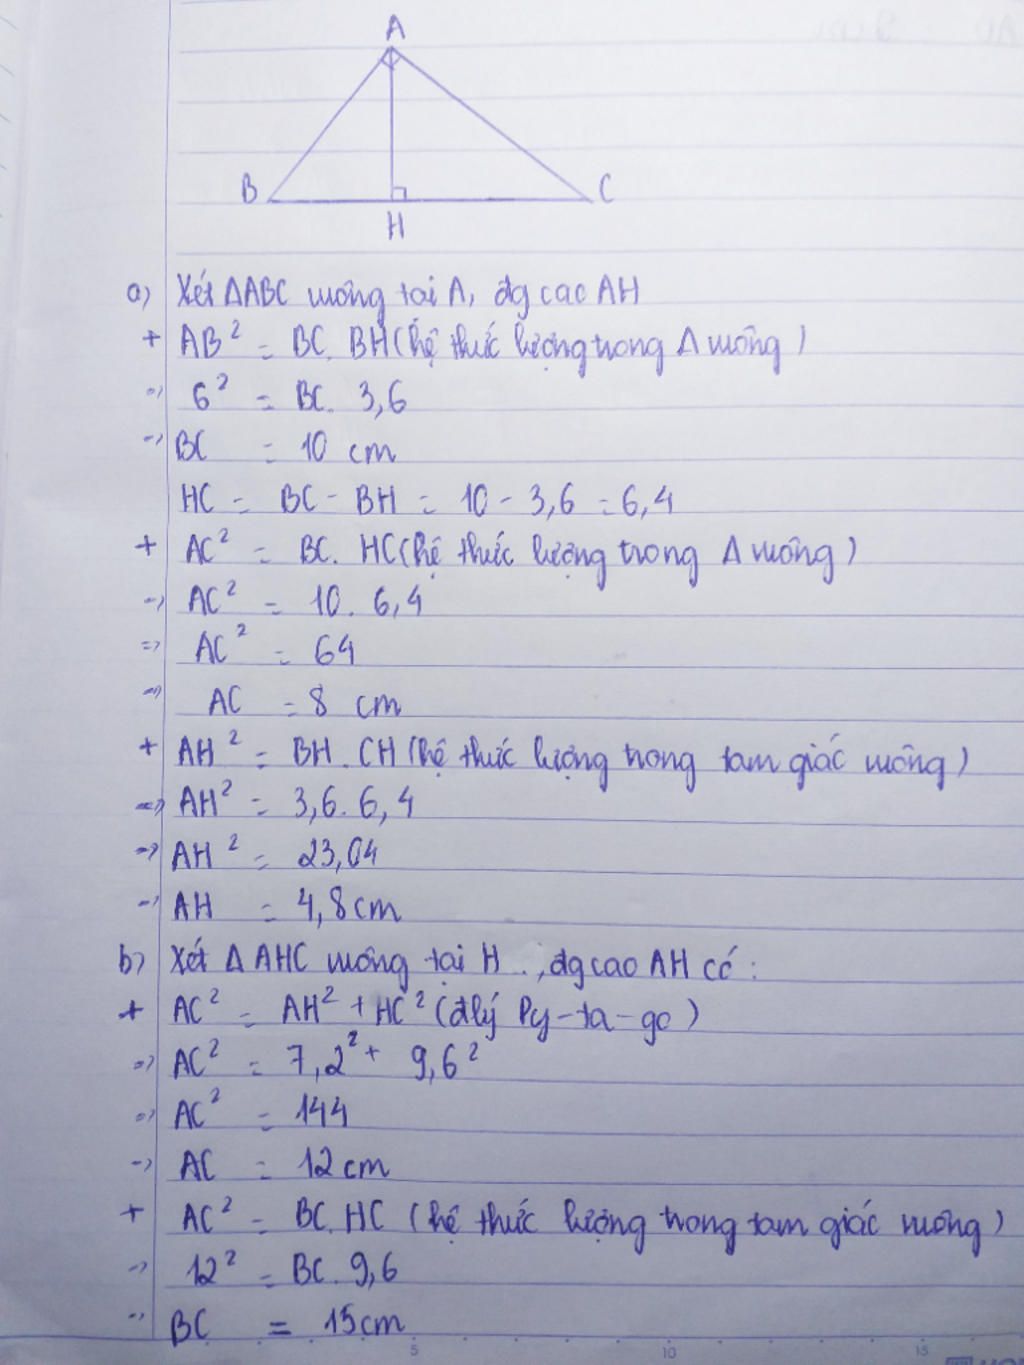 A
B
C
H
a) Xét ΔABC vuông tại A, đg cao AH
+ AB² = BC. BH (hệ thức lượng trong Δ vuông)
=> 6² = BC. 3,6
=> BC = 10 cm
HC = BC - BH = 10 - 3,6 = 6,4
+ AC² = BC. HC (hệ thức lượng trong Δ vuông)
=> AC² = 10. 6,4
=> AC² = 64
=> AC = 8 cm
+ AH² = BH. CH (hệ thức lượng trong tam giác vuông)
=> AH² = 3,6. 6,4
=> AH² = 23,04
=> AH = 4,8cm
b) Xét Δ AHC vuông tại H., đg cao AH có:
+ AC² = AH² + HC² (đlý Py-ta-go)
=> AC² = 7,2² + 9,6²
=> AC² = 144
=> AC = 12cm
+ AC² = BC. HC (hệ thức lượng trong tam giác vuông)
=> 12² = BC. 9,6
=> BC = 15cm
5 10 15